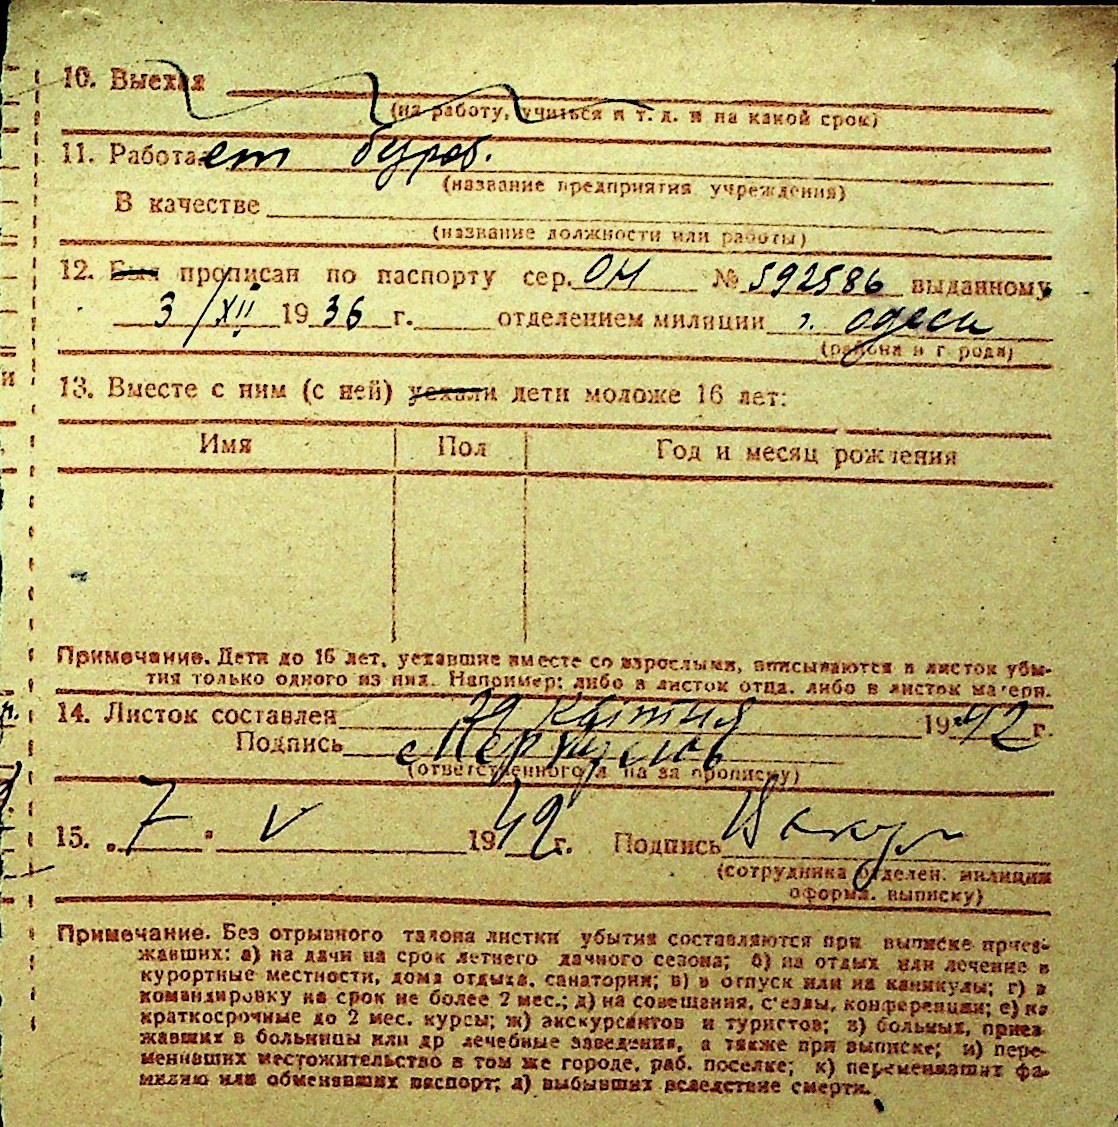 10. Выехал
(на работу, учиться и т. д. и на какой срок)
11. Работает буров.
(название предприятия учреждения)
В качестве
(название должности или работы)
12. Был прописан по паспорту сер. ОН № 592586 выданному
3/XII 1936 г. отделением милиции г. Одеси
(района и города)
13. Вместе с ним (с ней) уехали дети моложе 16 лет:
Имя Пол Год и месяц рождения
Примечание. Дети до 16 лет, уехавшие вместе со взрослыми, вписываются в листок убы-
тия только одного из них. Например: либо в листок отца, либо в листок матери.
14. Листок составлен 29 1942 г.
Подпись
(ответственного л на за прописку)
15. „7" V 1942 г. Подпись
(сотрудника отделен. милиции
оформл. выписку)
Примечание. Без отрывного талона листки убытия составляются при выписке приез-
жавших: а) на дачи на срок летнего дачного сезона; б) на отдых или лечение в
курортные местности, дома отдыха, санатории; в) в отпуск или на каникулы; г) в
командировку на срок не более 2 мес.; д) на совещания, с'езды, конференции; е) на
краткосрочные до 2 мес. курсы; ж) экскурсантов и туристов; з) больных, приез-
жавших в больницы или др лечебные заведения, а также при выписке; и) пере-
менивших местожительство в том же городе, раб. поселке; к) переменивших фа-
милию или обменявших паспорт; л) выбывших вследствие смерти.